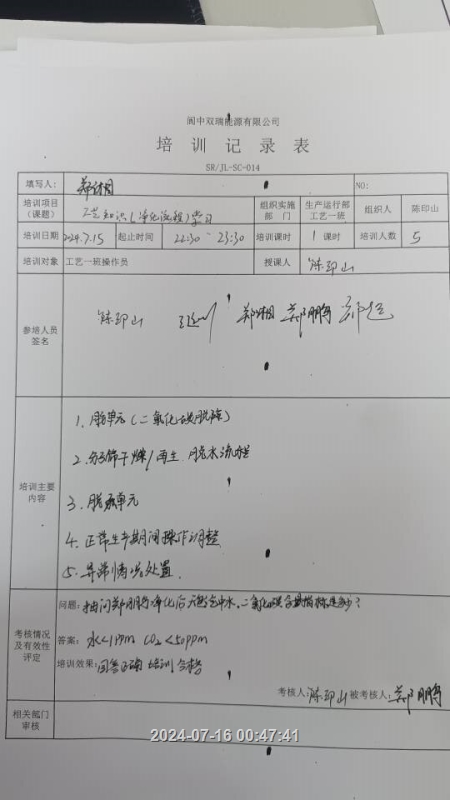 阆中双瑞能源有限公司
培训记录表
SR/JL-SC-014
填写人: 郑相 NO:
培训项目(课题) 工艺知识(净化流程)学习 组织实施部门 生产运行部工艺一班 组织人 陈印山
培训日期 2024.7.15 起止时间 22:30-23:30 培训课时 1课时 培训人数 5
培训对象 工艺一班操作员 授课人 陈印山
参培人员签名 陈印山 郑相 郑鹏
培训主要内容
1. 脱碳单元(二氧化碳脱除)
2. 分子筛干燥/再生 脱水流程
3. 脱汞单元
4. 正常生产期间操作调整
5. 异常情况处置.
考核情况及有效性评定
问题: 抽问郑鹏净化后天然气中水、二氧化碳含量指标是多少?
答案: 水<1ppm CO₂<50ppm
培训效果: 回答正确 培训合格
考核人: 陈印山 被考核人: 郑鹏
相关部门审核
2024-07-16 00:47:41